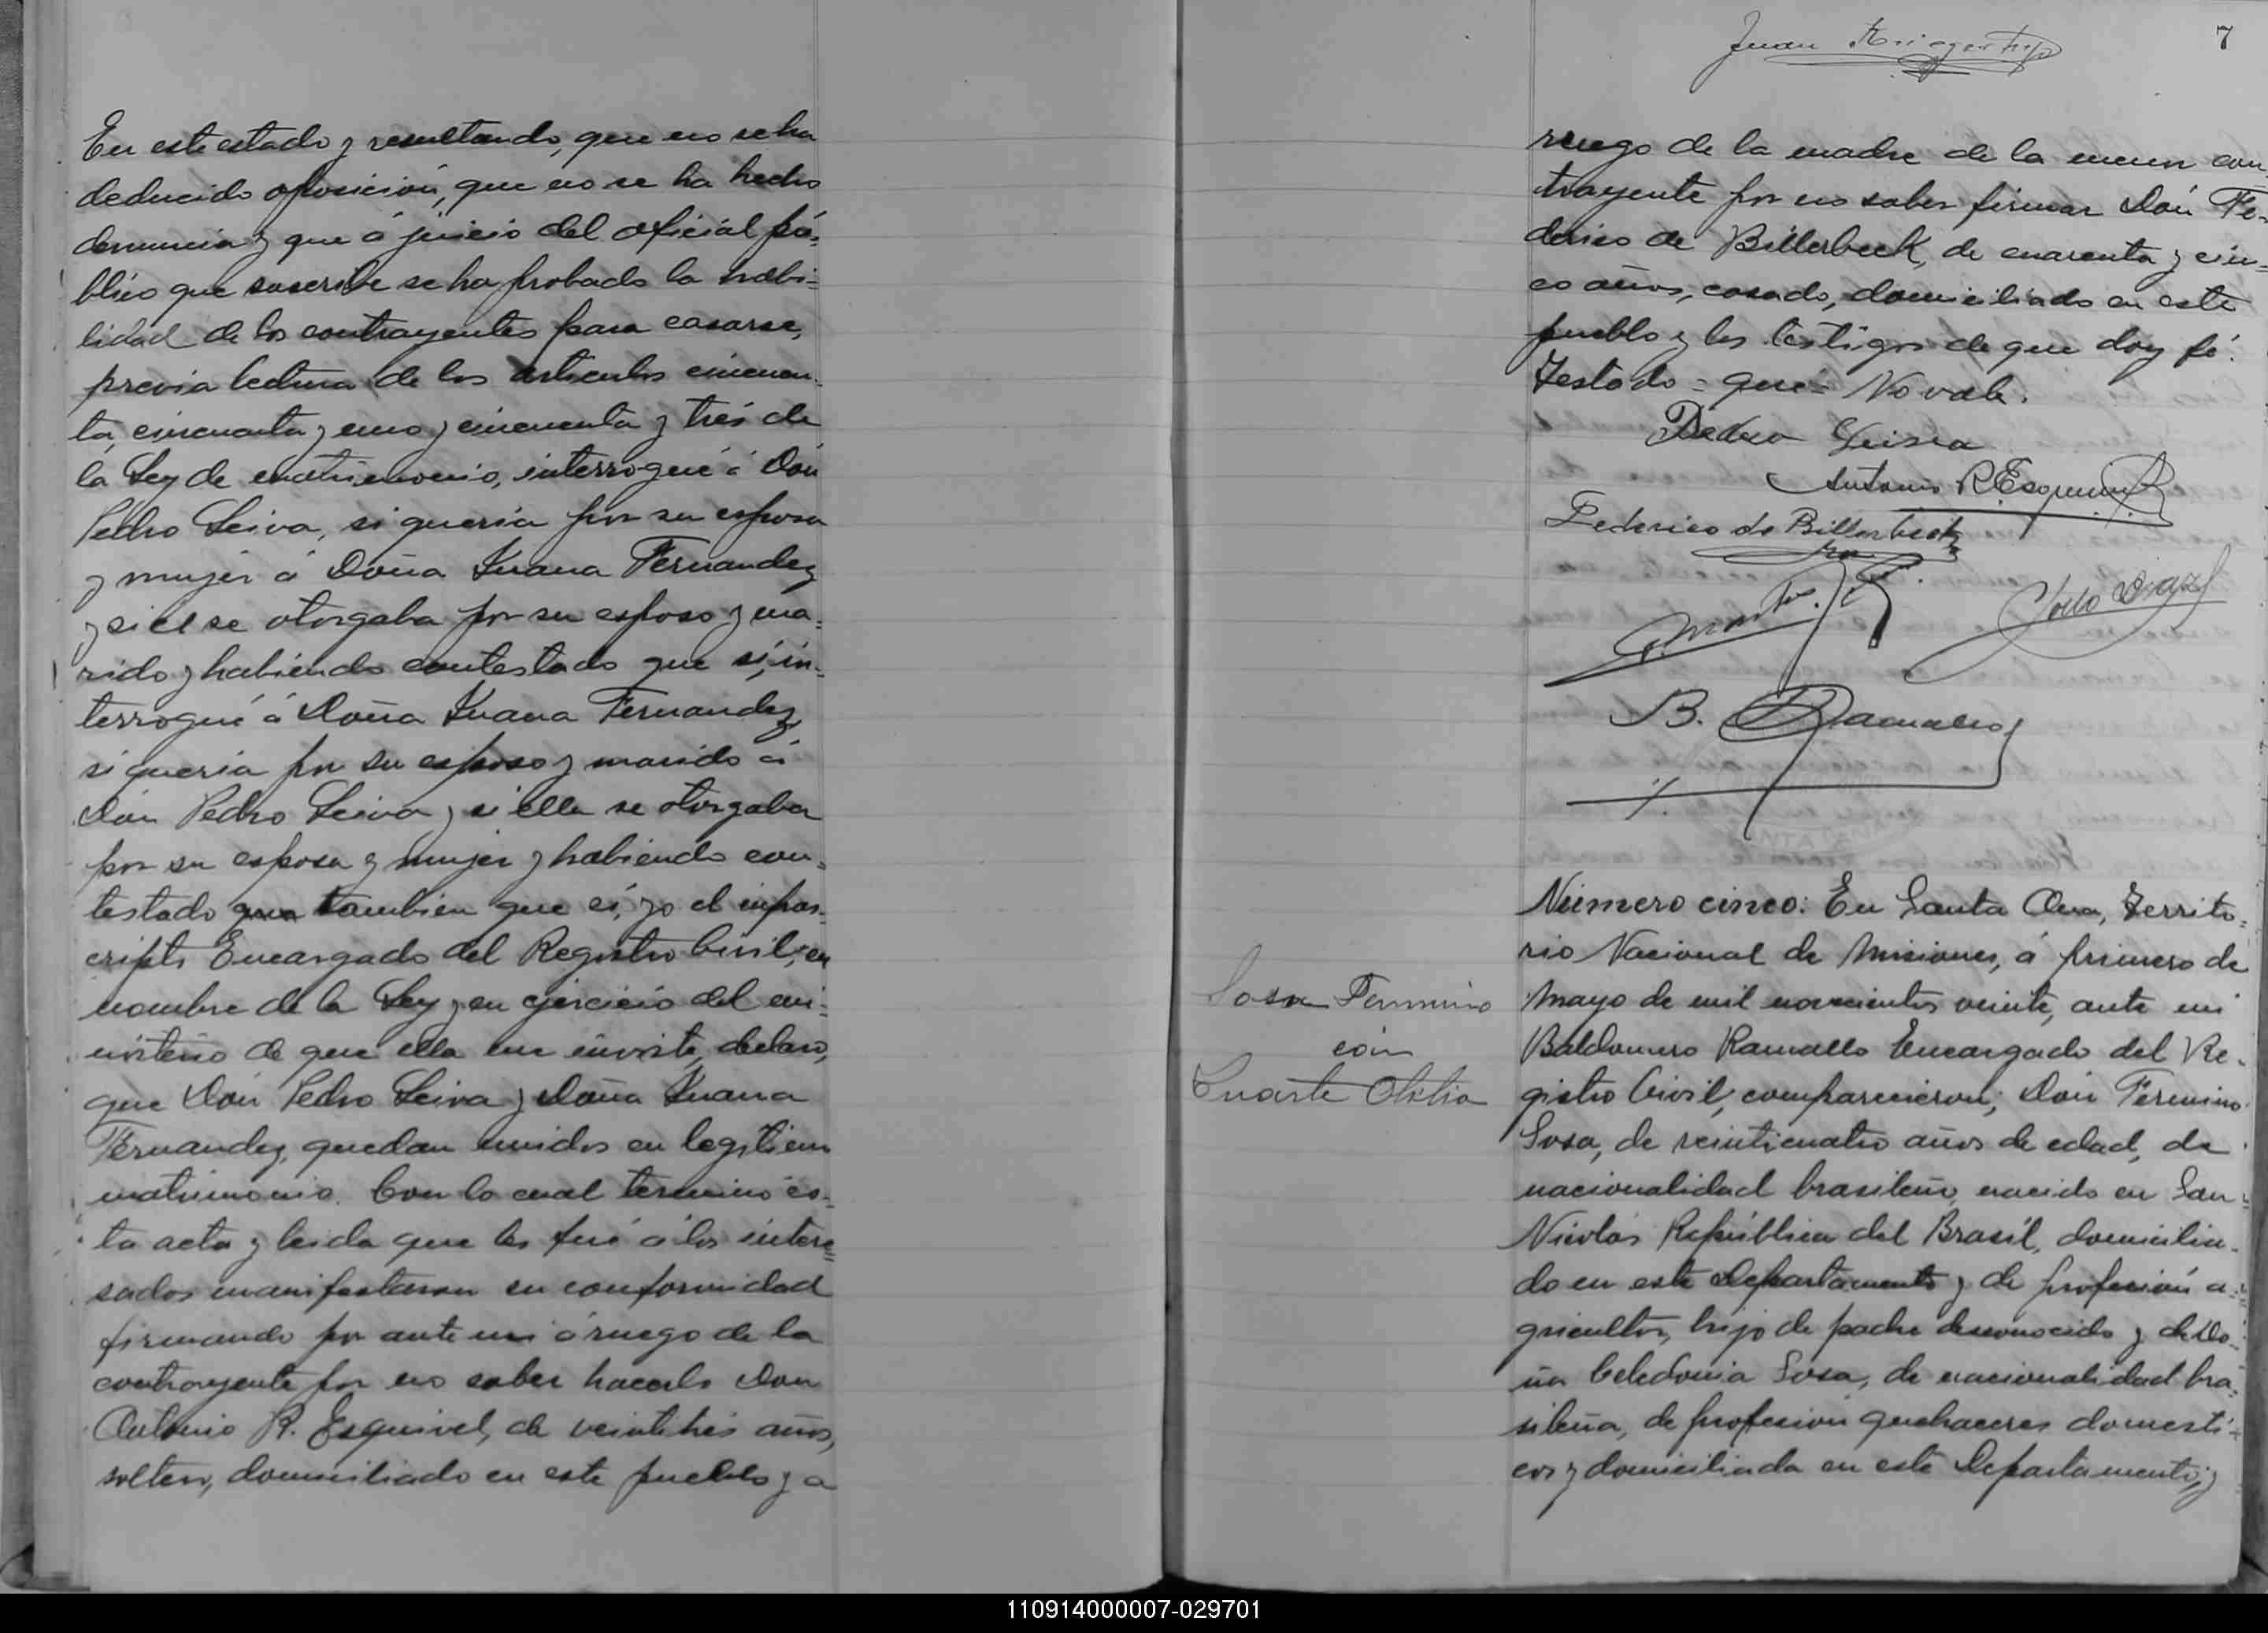 En este estado y resultando, que no se ha
deducido oposición, que no se ha hecho
denuncia y que á juicio del oficial pú=
blico que suscribe se ha probado la habi=
lidad de los contrayentes para casarse,
previa lectura de los articulos cincuen-
ta, cincuenta y uno y cincuenta y tres de
la Ley de matrimonio, interrogué á Don
Pedro Leiva, si queria por su esposa
y mujer á Doña Juana Fernandez
y si el se otorgaba por su esposo y ma=
rido y habiendo contestado que sí, in-
terrogué á Doña Juana Fernandez,
si queria por su esposo y marido á
Don Pedro Leiva y si ella se otorgaba
por su esposa y mujer y habiendo con=
testado que tambien que sí, yo el infras-
cripto Encargado del Registro Civil, en
nombre de la Ley y en ejercicio del mi-
nisterio de que ella me inviste, declaro,
que Don Pedro Leiva y Doña Juana
Fernandez, quedan unidos en legitimo
matrimonio. Con lo cual termino es-
ta acta y leida que les fué á los intere=
sados manifestaron su conformidad
firmando por ante mi á ruego de la
contrayente por no saber hacerlo Don
Antonio R. Esquivel, de veintitres años,
soltero, domiciliado en este pueblo y a
Juan
7
ruego de la madre de la menor con
trayente por no saber firmar Don Fe-
derico de Billerbeck, de cuarenta y cin=
co años, casado, domiciliado en este
pueblo y los testigos de que doy fé.
Testado = que = No vale.
Pedro Leiva
Antonio R. Esquivel
Federico de Billerbeck
B. Ramallo
Número cinco: En Santa Ana, Territo=
rio Nacional de Misiones, á primero de
Mayo de mil novecientos veinte, ante mi
Baldomero Ramallo Encargado del Re-
gistro Civil, comparecieron; Don Fermino
Sosa, de veinticuatro años de edad, de
nacionalidad brasileño, nacido en San
Nicolás República del Brasil, domicilia-
do en este Departamento y de profesión a-
gricultor, hijo de padre desconocido y de Do-
ña Celedonia Sosa, de nacionalidad bra=
sileña, de profesión quehaceres domesti-
cos y domiciliada en este Departamento; y
Sosa Fermino
con
Duarte Otilia
110914000007-029701